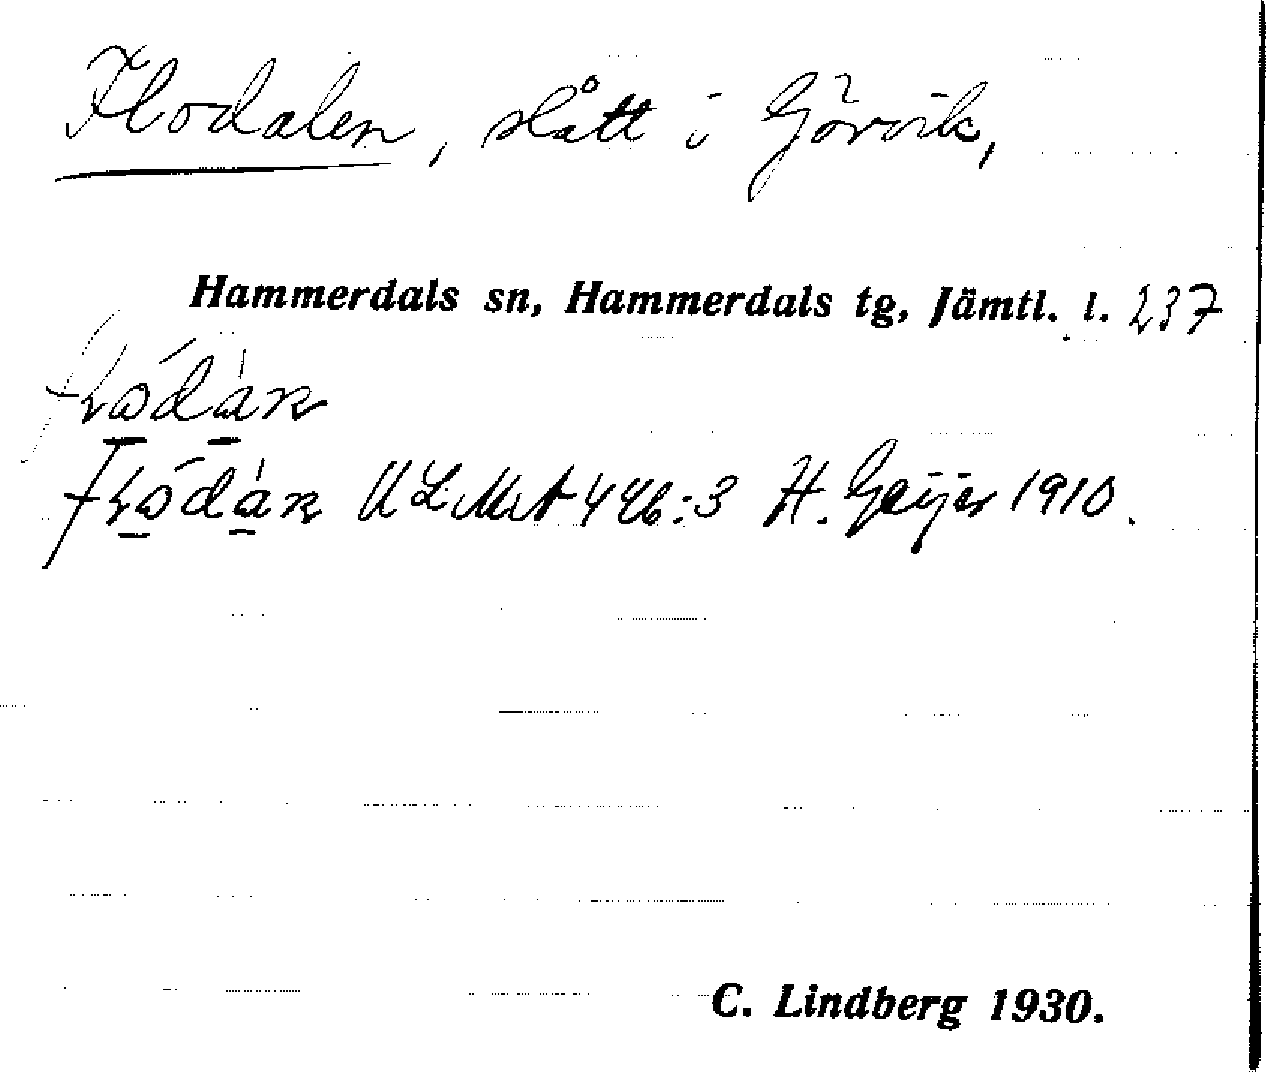 Flodalen, slått i Görvik,
Hammerdals sn, Hammerdals tg, Jämtl. l. 237
ULMA 446:3 H. Geijer 1910.
C. Lindberg 1930.